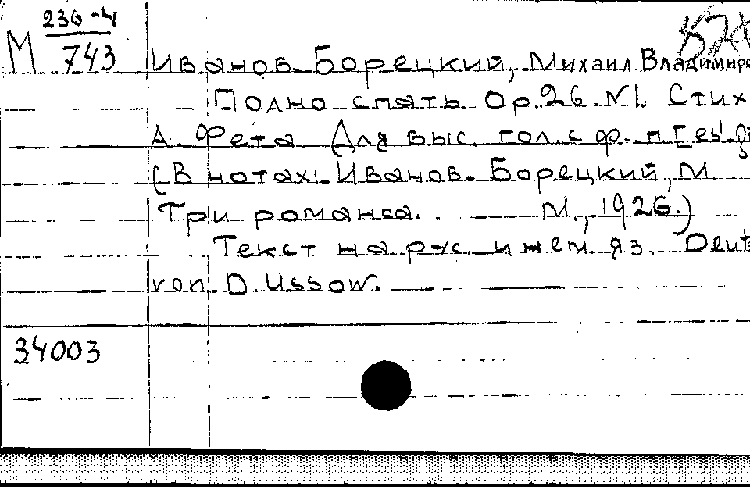 М 236-4
743
Иванов-Борецкий, Михаил Владимиро
Полно спать. Ор.26.N1. Стих
А. Фета Для выс. гол. с ф.-п
(В нотах: Иванов-Борецкий, М.
Три романса. . М., 1926.)
Текст на рус. и нем. яз. Deut
von D. Ussow.
34003